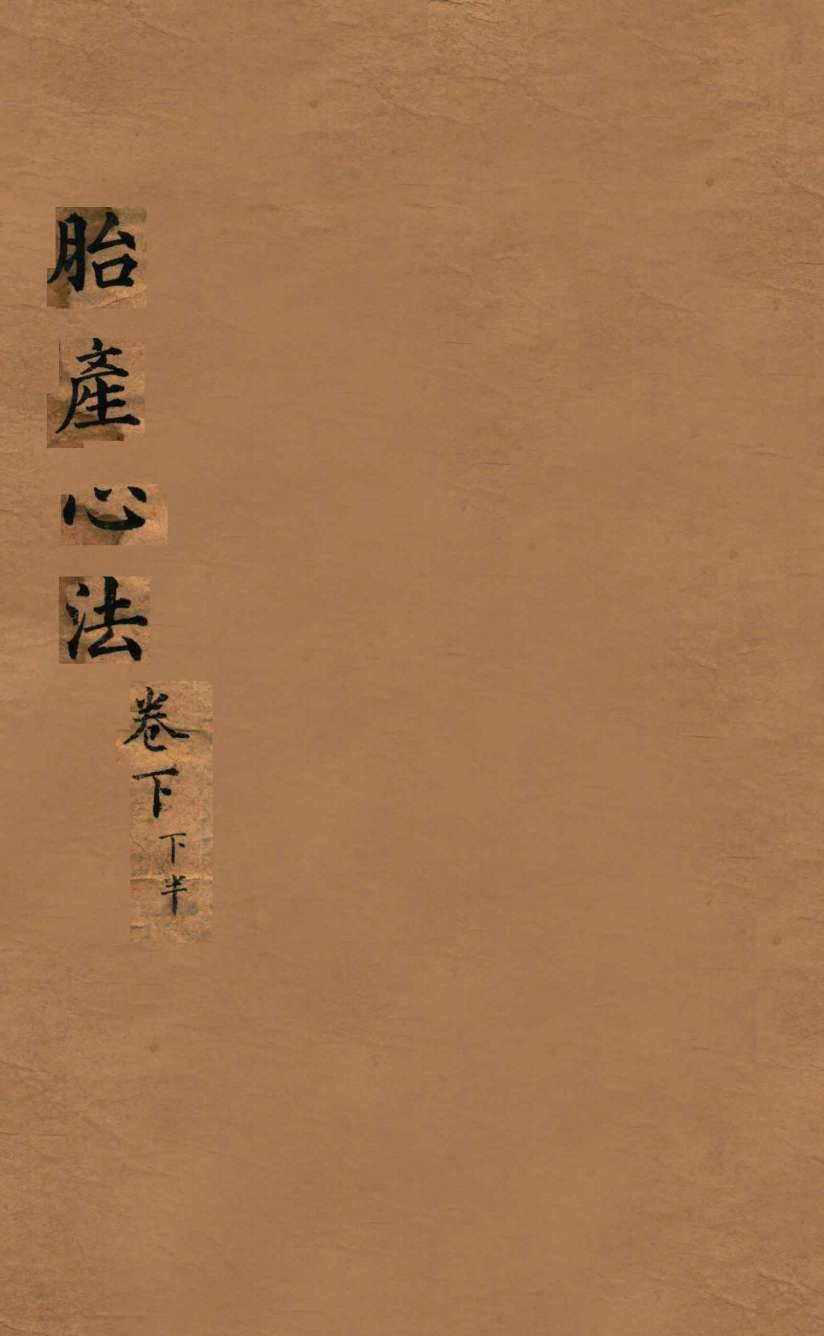 胎產心法
卷下下半